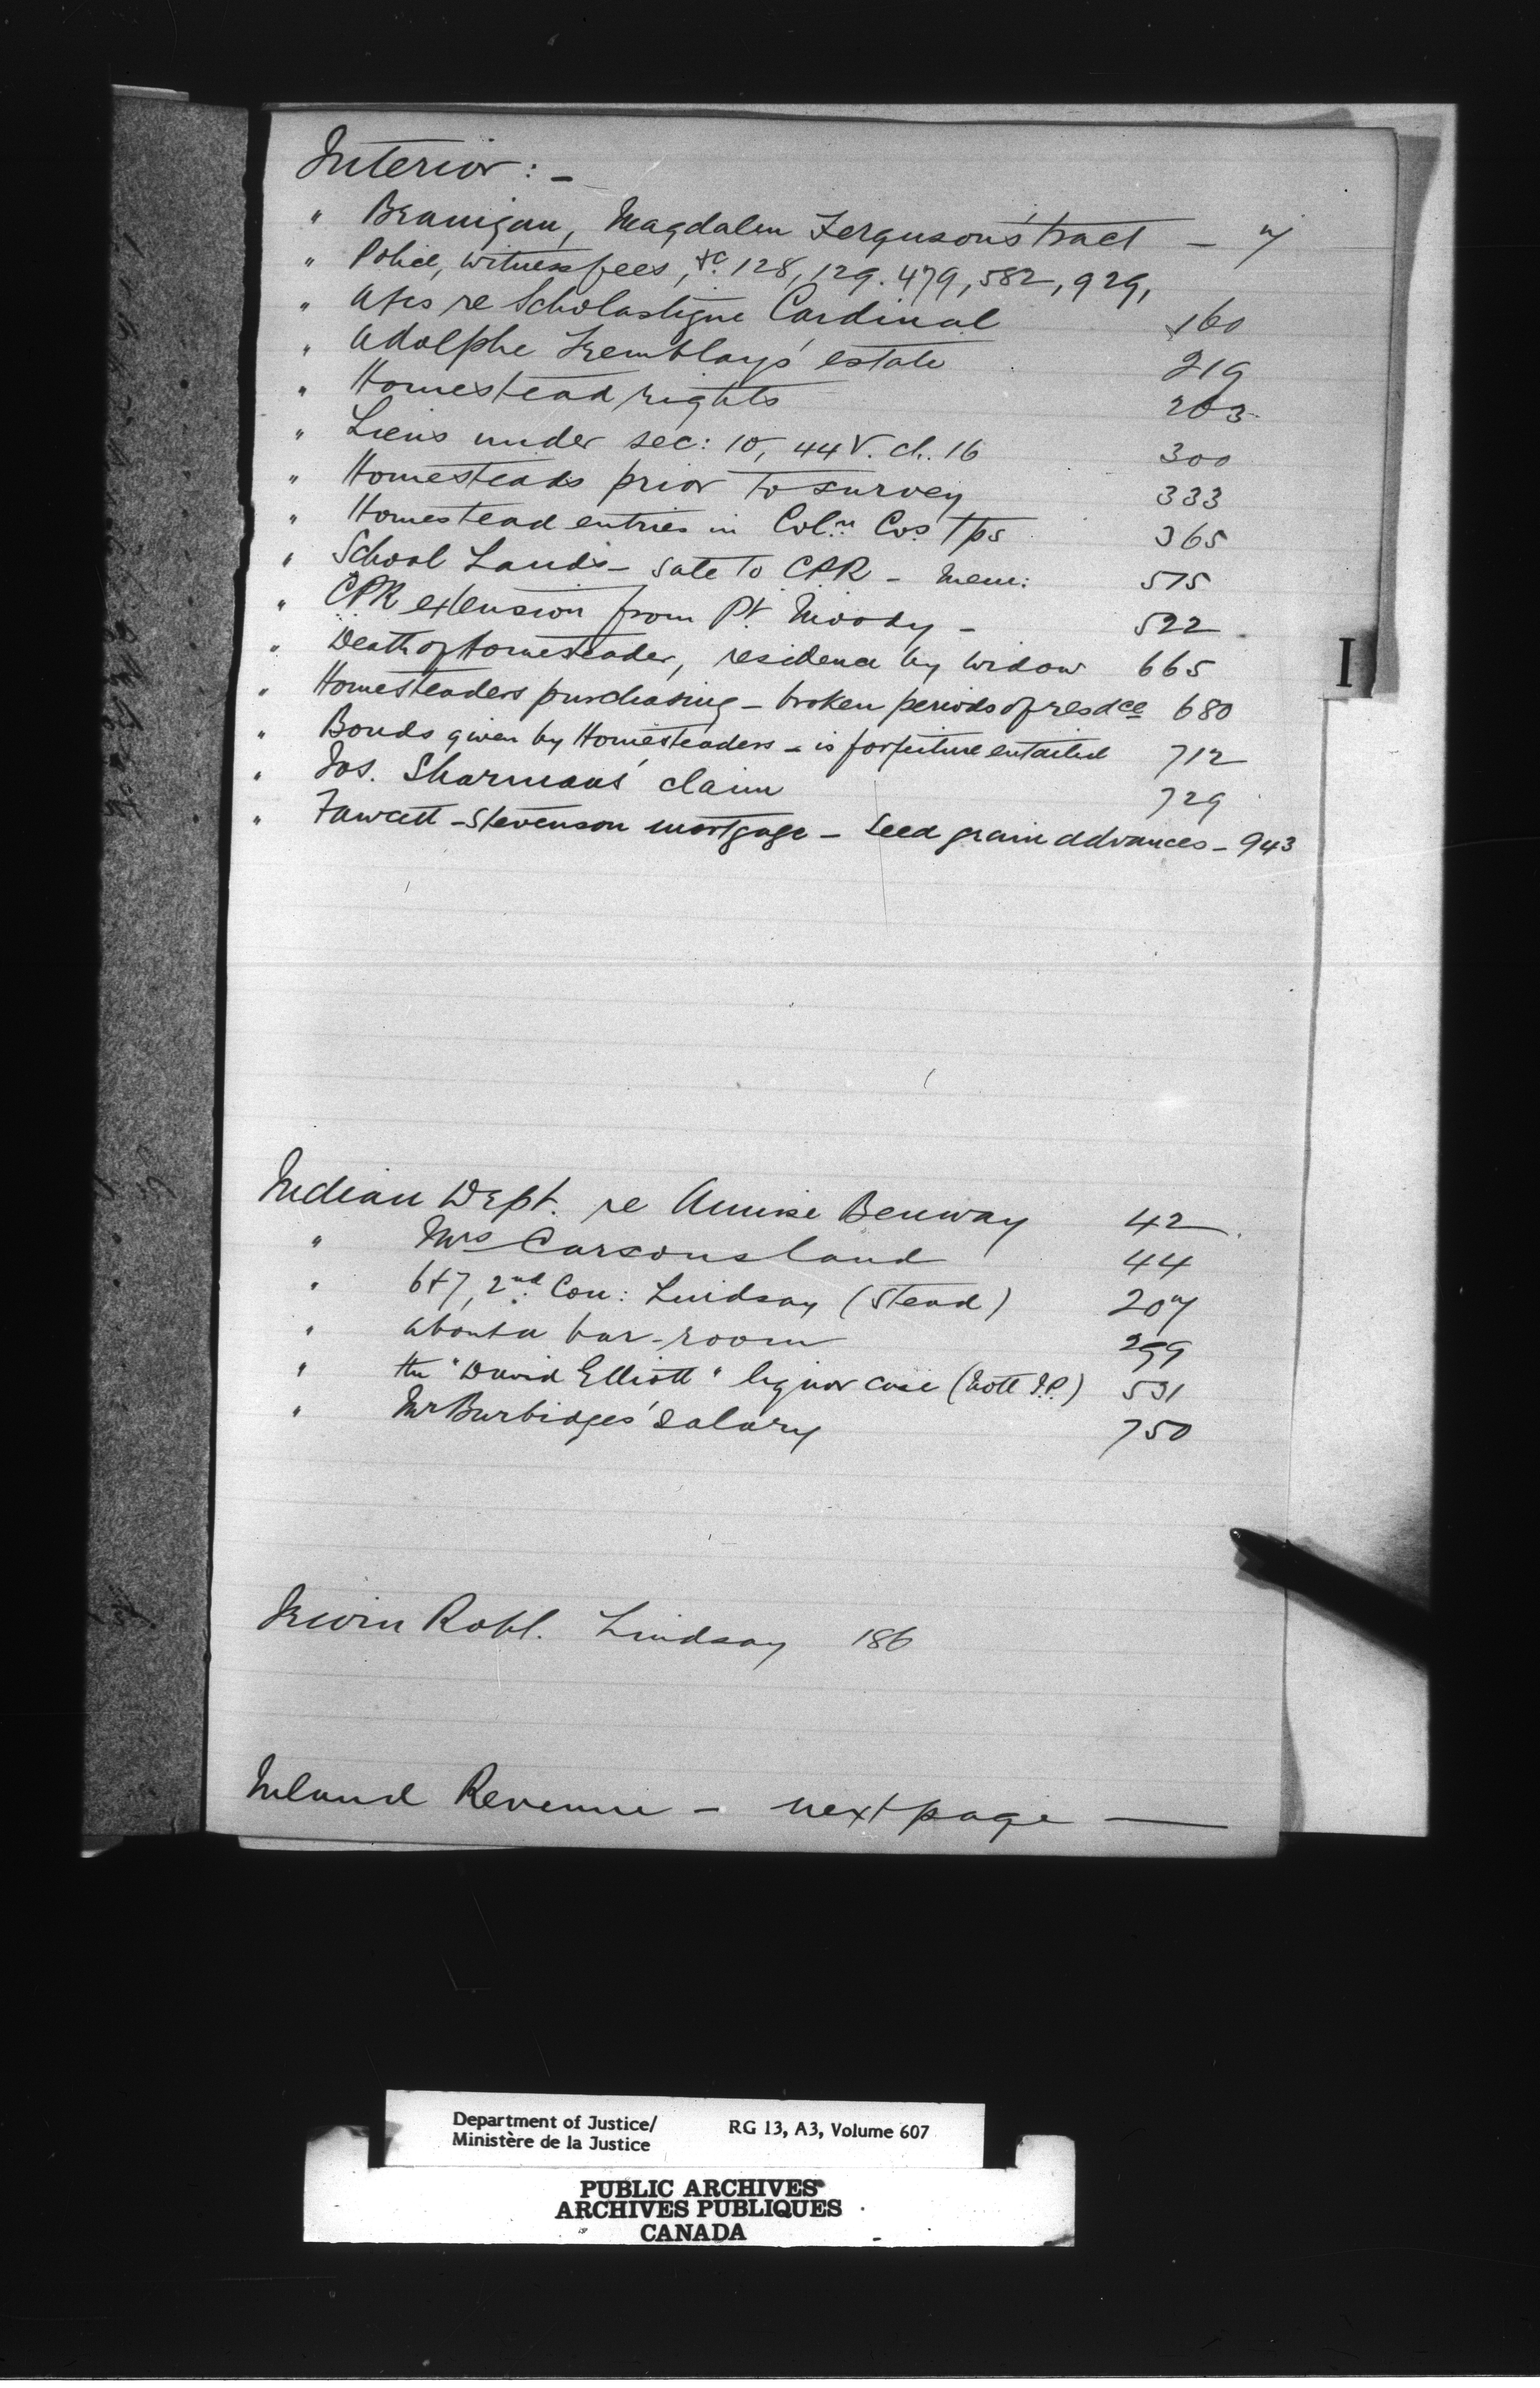 Interior : -
" Branigan, Magdalen Ferguson's tract - 7
" Police, witness fees, &c. 128, 129. 479, 582, 929,
" Afs re Scholastique Cardinal 160
" Adolphe Tremblay's estate 219
" Homestead rights 263
" Liens under sec: 10, 44 V. ch. 16 300
" Homesteads prior to survey 333
" Homestead entries in Coln Cos Tps 365
" School Lands - sale to CPR - Mem: 515
" CPR extension from Pt. Moody - 522
" Death of Homesteader, residence by widow 665
" Homesteaders purchasing - broken periods of resdce 680
" Bonds given by Homesteaders - is forfeiture entailed 712
" Jos. Sharman's claim 729
" Fawcett - Stevenson mortgage - seed grain advances - 943
I
Indian Dept. re Benway 42
" Mrs Carson's land 44
" 6 & 7, 2nd Con: Lindsay (Stead) 207
" about a bar-room 299
" the "David Elliott" liquor case (Nott J.P.) 531
" Mr Burbidge's salary 750
Irwin Robt. Lindsay 186
Inland Revenue - next page —
Department of Justice/ RG 13, A3, Volume 607
Ministère de la Justice
PUBLIC ARCHIVES
ARCHIVES PUBLIQUES
CANADA